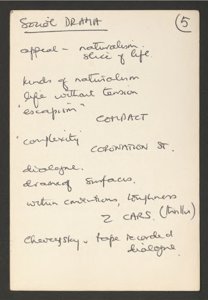 SOCIAL DRAMA
5
appeal - naturalism.
slice of life
kinds of naturalism
life without tension
"escapism"
COMPACT
complexity
CORONATION ST.
dialogue.
drama of surfaces.
within conventions, toughness
Z CARS. (thriller)
tape recorded
dialogue.